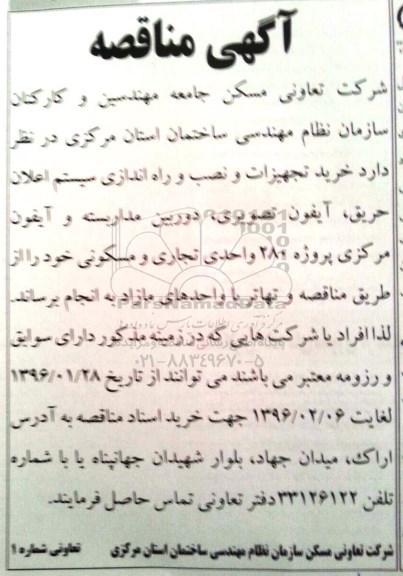 آگهی مناقصه
شرکت تعاونی مسکن جامعه مهندسین و کارکنان
سازمان نظام مهندسی ساختمان استان مرکزی در نظر
دارد خرید تجهیزات و نصب و راه اندازی سیستم اعلان
حریق، آیفون تصویری، دوربین مداربسته و آیفون
مرکزی پروژه ۲۸۰ واحدی تجاری و مسکونی خود را از
طریق مناقصه و تهاتر با واحدهای مازاد به انجام برساند.
لذا افراد یا شرکت هایی که در زمینه مذکور دارای سوابق
و رزومه معتبر می باشند می توانند از تاریخ ۱۳۹۶/۰۱/۲۸
لغایت ۱۳۹۶/۰۲/۰۶ جهت خرید اسناد مناقصه به آدرس
اراک، میدان جهاد، بلوار شهیدان جهانپناه یا با شماره
تلفن ۳۳۱۲۶۱۲۲ دفتر تعاونی تماس حاصل فرمایند.
شرکت تعاونی مسکن سازمان نظام مهندسی ساختمان استان مرکزی تعاونی شماره ۱
ParsNamadData
۰۲۱-۸۸۳۴۹۶۷۰-۵